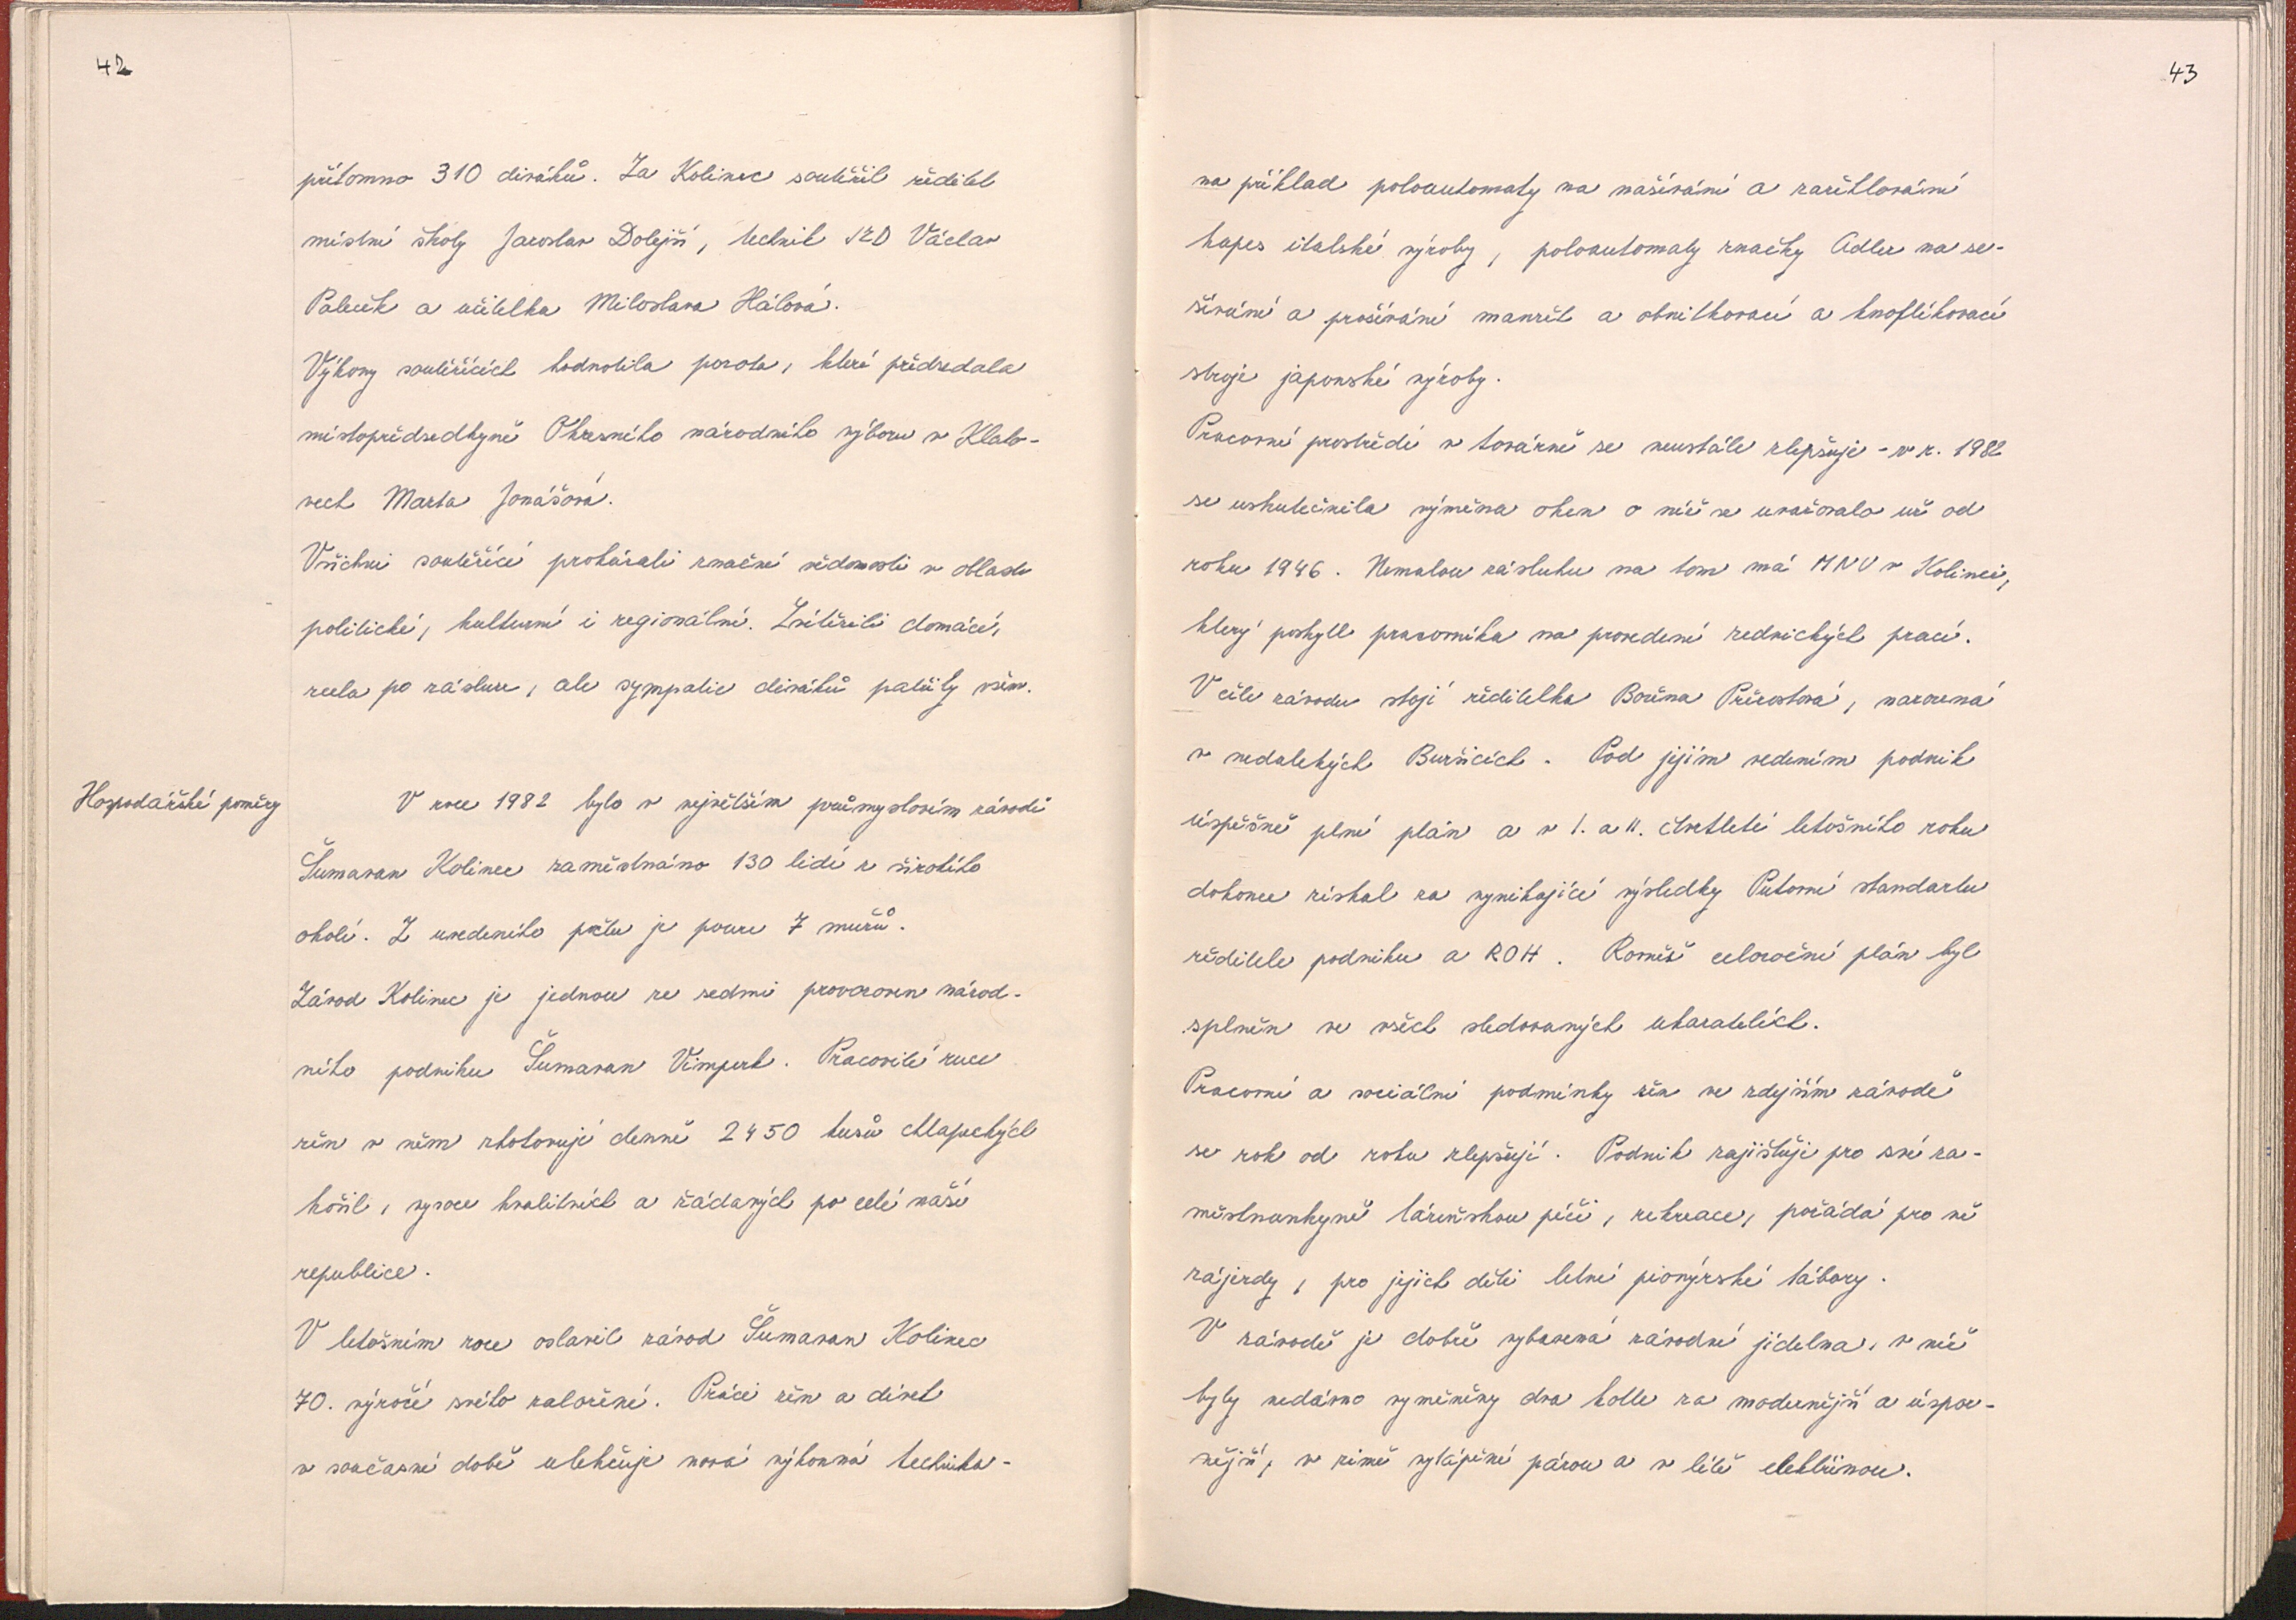 42
přítomno 310 diváků. Za Kolinec soutěžil ředitel
místní školy Jaroslav Dolejší, technik JZD Václav
Paleček a učitelka Miloslava Hálová.
Výkony soutěžících hodnotila porota, které předsedala
místopředsedkyně Okresního národního výboru v Klato-
vech Marta Jonášová.
Všichni soutěžící prokázali značné vědomosti v oblasti
politické, kulturní i regionální. Zvítězili domácí,
zcela po zásluze, ale sympatie diváků patřily všem.
Hospodářské poměry
V roce 1982 bylo v největším průmyslovém závodě
Šumavan Kolinec zaměstnáno 130 lidí z širokého
okolí. Z uvedeného počtu je pouze 7 mužů.
Závod Kolinec je jednou ze sedmi provozoven národ-
ního podniku Šumavan Vimperk. Pracovité ruce
žen v něm zhotovují denně 2450 kusů chlapeckých
košil, vysoce kvalitních a žádaných po celé naší
republice.
V letošním roce oslavil závod Šumavan Kolinec
70. výročí svého založení. Práci žen a dívek
v současné době ulehčuje nová výkonná technika -
43
na příklad poloautomaty na našívání a zažehlování
kapes italské výroby, poloautomaty značky Adler na se-
šívání a prošívání manžet a obnitkovací a knoflíkovací
stroje japonské výroby.
Pracovní prostředí v továrně se neustále zlepšuje - v r. 1982
se uskutečnila výměna oken o níž se uvažovalo už od
roku 1946. Nemalou zásluhu na tom má MNV v Kolinci,
který poskytl pracovníka na provedení zednických prací.
V čele závodu stojí ředitelka Božena Přírostová, narozená
v nedalekých Buršicích. Pod jejím vedením podnik
úspěšně plní plán a v I. a II. čtvrtletí letošního roku
dokonce získal za vynikající výsledky Putovní standartu
ředitele podniku a ROH. Rovněž celoroční plán byl
splněn ve všech sledovaných ukazatelích.
Pracovní a sociální podmínky žen ve zdejším závodě
se rok od roku zlepšují. Podnik zajišťuje pro své za-
městnankyně lázeňskou péči, rekreace, pořádá pro ně
zájezdy, pro jejich děti letní pionýrské tábory.
V závodě je dobře vybavená závodní jídelna, v níž
byly nedávno vyměněny dva kotle za modernější a úspor-
nější, v zimě vytápěné párou a v létě elektřinou.